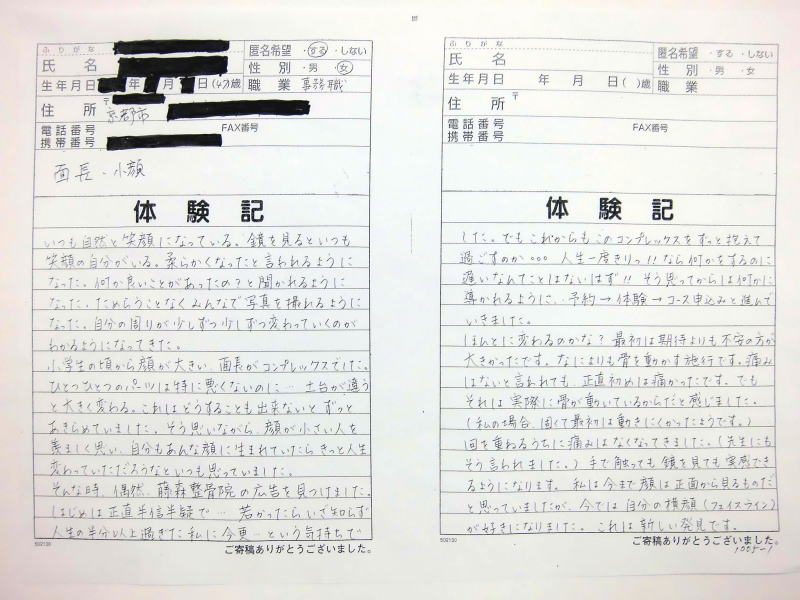 ふりがな
匿名希望 ・する ・しない
氏名
性別 ・男 ・女
生年月日 年 月 日(47)歳
職業 事務職
住所 〒 京都市
電話番号 FAX番号
携帯番号
面長・小顔
体験記
いつも自然と笑顔になっている。鏡を見るといつも
笑顔の自分がいる。柔らかくなったと言われるように
なった。何か良いことがあったの?と聞かれるように
なった。ためらうことなくみんなで写真を撮れるように
なった。自分の周りが少しずつ少しずつ変わっていくのが
わかるようになってきた。
小学生の頃から顔が大きい、面長がコンプレックスでした。
ひとつひとつのパーツは特に悪くないのに… 土台が違う
と大きく変わる。これはどうすることも出来ないとずっと
あきらめていました。そう思いながら、顔が小さい人を
羨ましく思い、自分もあんな顔に生まれていたらきっと人生
変わっていただろうなといつも思っていました。
そんな時、偶然、藤森整骨院の広告を見つけました。
はじめは正直半信半疑で… 若かったらいざ知らず
人生の半分以上過ぎた私に今更…という気持ちで
502130
ご寄稿ありがとうございました。
ふりがな
匿名希望 ・する ・しない
氏名
性別 ・男 ・女
生年月日 年 月 日( )歳
職業
住所 〒
電話番号 FAX番号
携帯番号
体験記
した。でもこれからもこのコンプレックスをずっと抱えて
過ごすのか。。。人生一度きりっ!!なら何かをするのに
遅いなんてことはないはず!!そう思ってからは何かに
導かれるように、予約→体験→コース申込みと進んで
いきました。
ほんとに変わるのかな?最初は期待よりも不安の方が
大きかったです。なによりも骨を動かす施行です。痛み
はないと言われても、正直初めは痛かったです。でも
それは実際に骨が動いているからだと感じました。
(私の場合、固くて最初は動きにくかったようです。)
回を重ねるうちに痛みはなくなてきました。(先生にも
そう言われました。)手で触っても鏡を見ても実感でき
るようになります。私は今まで顔は正面から見るものだ
と思っていましたが、今では自分の横顔(フェイスライン)
が好きになりました。これは新しい発見です。
502130
ご寄稿ありがとうございました。
1005-1